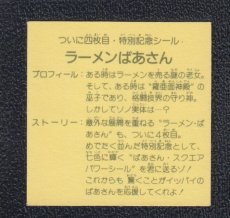 ついに四枚目・特別記念シール
ラーメンばあさん
プロフィール：ある時はラーメンを売る謎の老女。
そして、ある時は“羅亜面神殿”の
巫子であり、格闘技界の守り神。
しかしてソノ実体は…？
ストーリー：意外な展開を重ねる“ラーメン・ば
あさん”も、ついに4枚目。
めでたい特別記念として、
七色に輝く“ばあさん・スクエア
パワーシール”を送るゾ！
これからも驚くことがイッパイの
ばあさんを応援してくれよ！